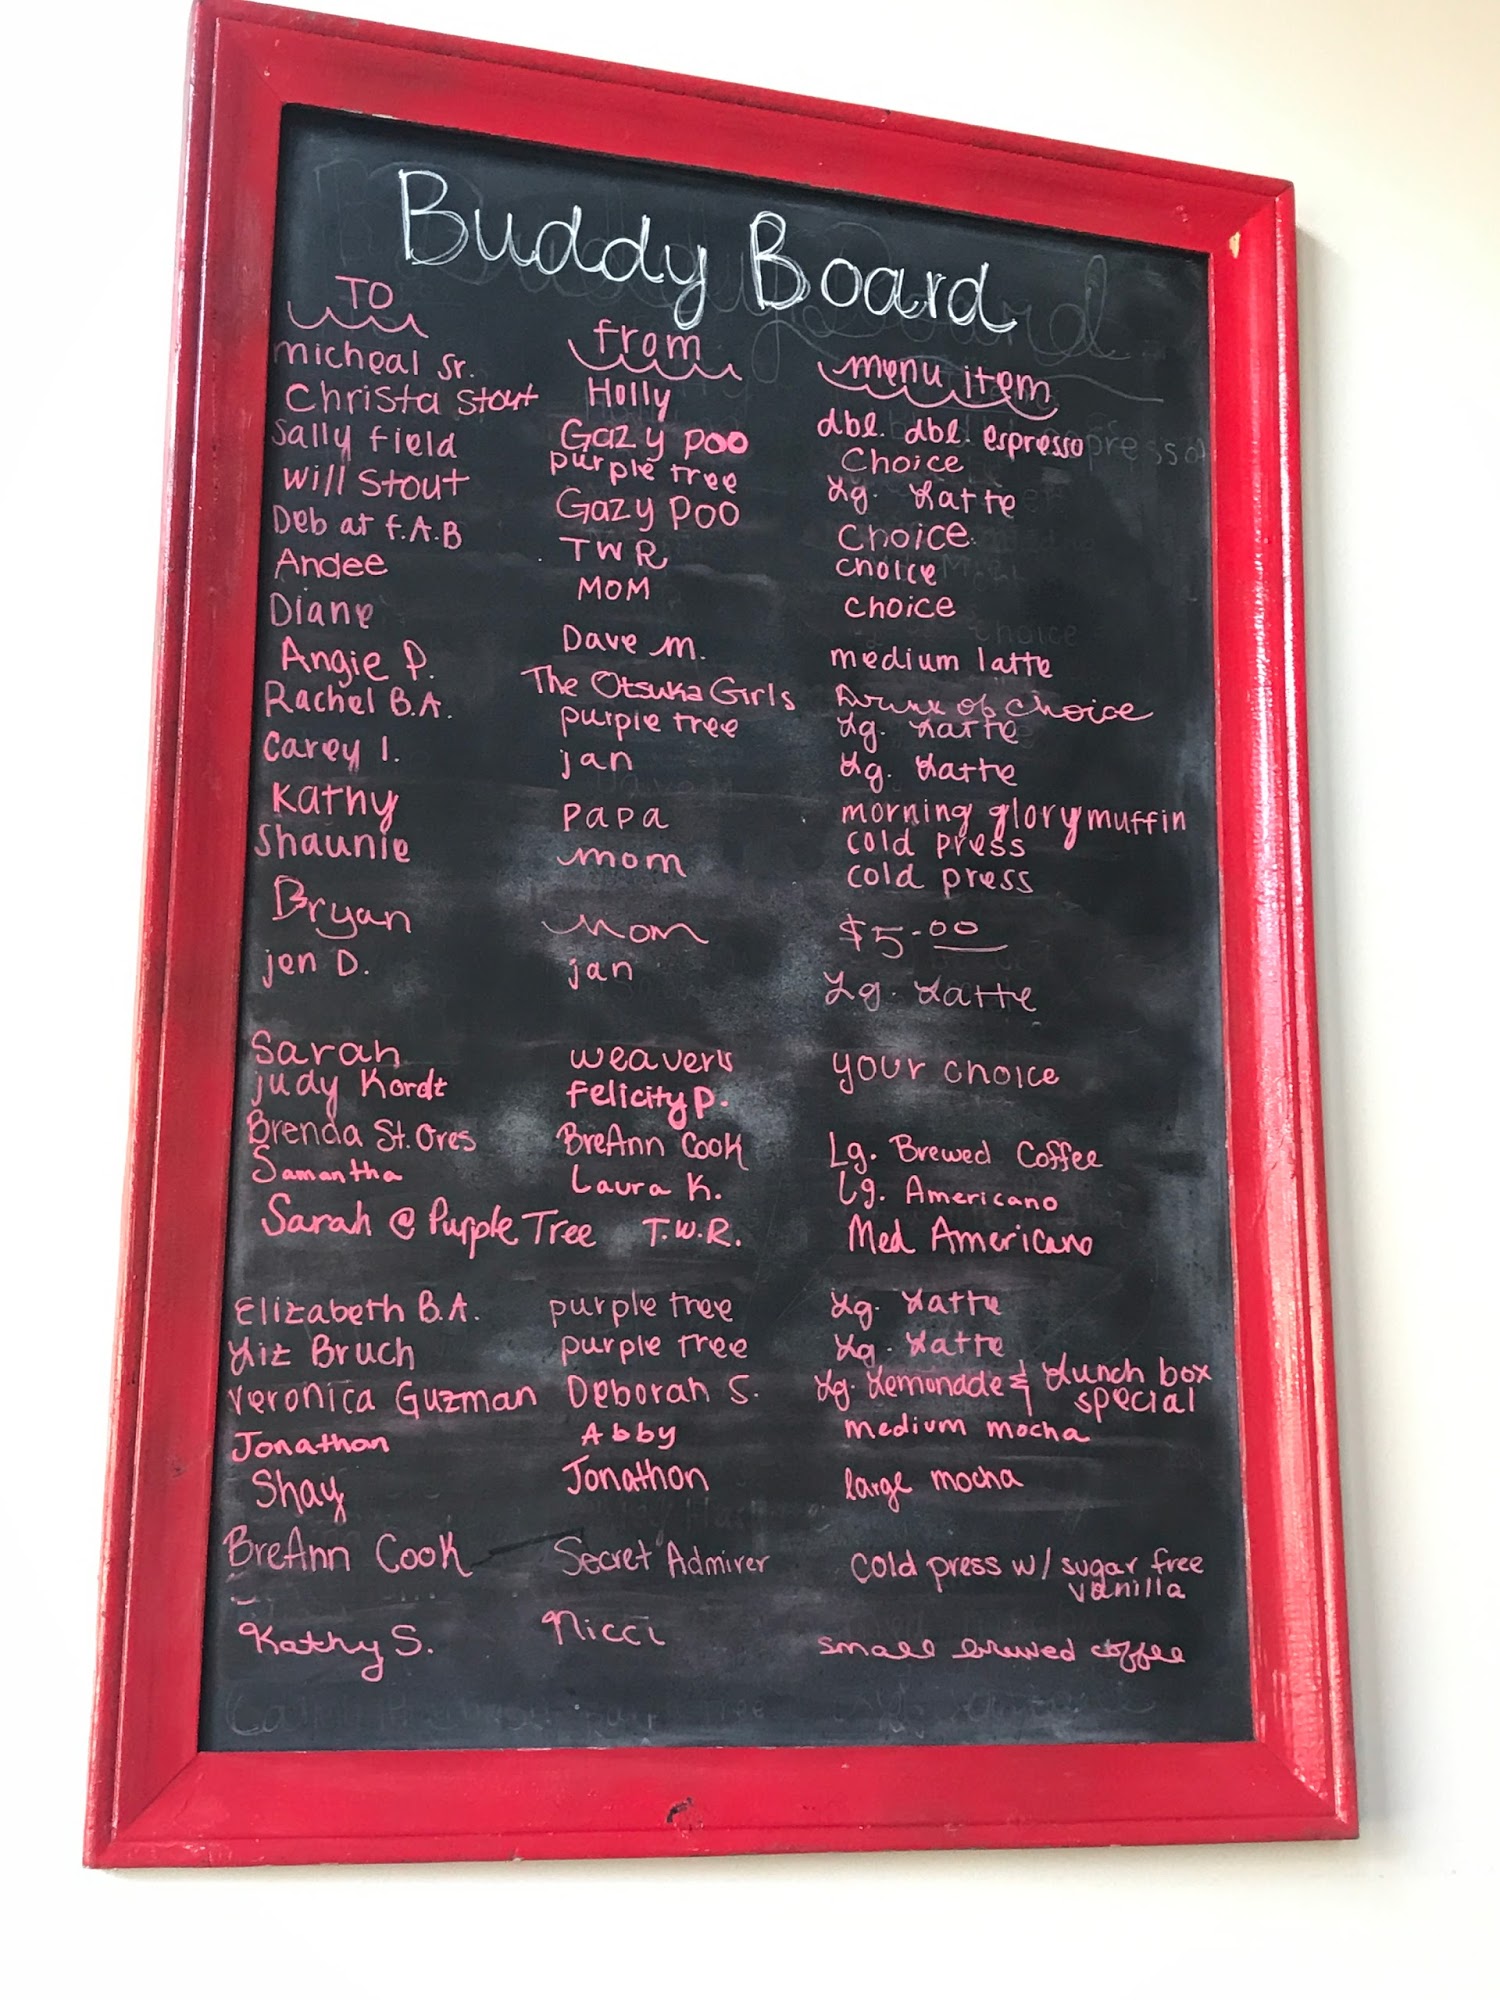 Buddy Board
TO from menu item
micheal sr. Holly dbl. dbl. espresso
Christa Stout Gazy poo Choice
Sally Field purple tree Lg. Latte
Will Stout Gazy Poo Choice
Deb at F.A.B TWR choice
Andee MOM choice
Diane Dave m. medium latte
Angie P. The Otsuka Girls Drink of choice
Rachel B.A. purple tree Lg. Latte
Carey I. jan Lg. Latte
Kathy PAPA morning glory muffin
Shaunie mom cold press
cold press
Bryan Mom $5.00
jen D. jan Lg. Latte
Sarah weavers your choice
judy Kordt Felicity P.
Brenda St. Ores BreAnn Cook Lg. Brewed Coffee
Samantha Laura K. Lg. Americano
Sarah @ Purple Tree T.W.R. Med Americano
Elizabeth B.A. purple tree Lg. Latte
Liz Bruch purple tree Lg. Latte
Veronica Guzman Deborah S. Lg. Lemonade & Lunch box
special
Jonathan Abby medium mocha
Shay Jonathon large mocha
BreAnn Cook Secret Admirer cold press w/ sugar free
vanilla
Kathy S. Nicci small brewed coffee